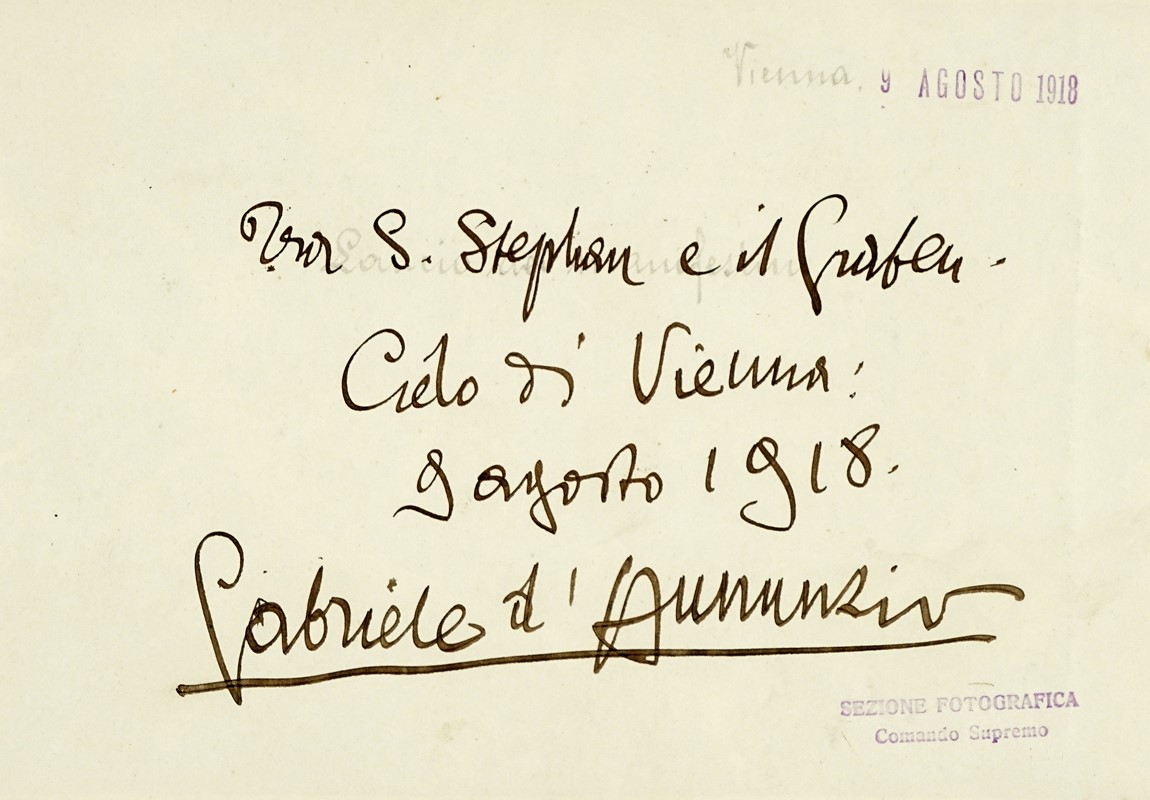 Vienna, 9 AGOSTO 1918
Tra S. Stephan e il Graben.
Cielo di Vienna:
9 agosto 1918.
Gabriele d'Annunzio
SEZIONE FOTOGRAFICA
Comando Supremo